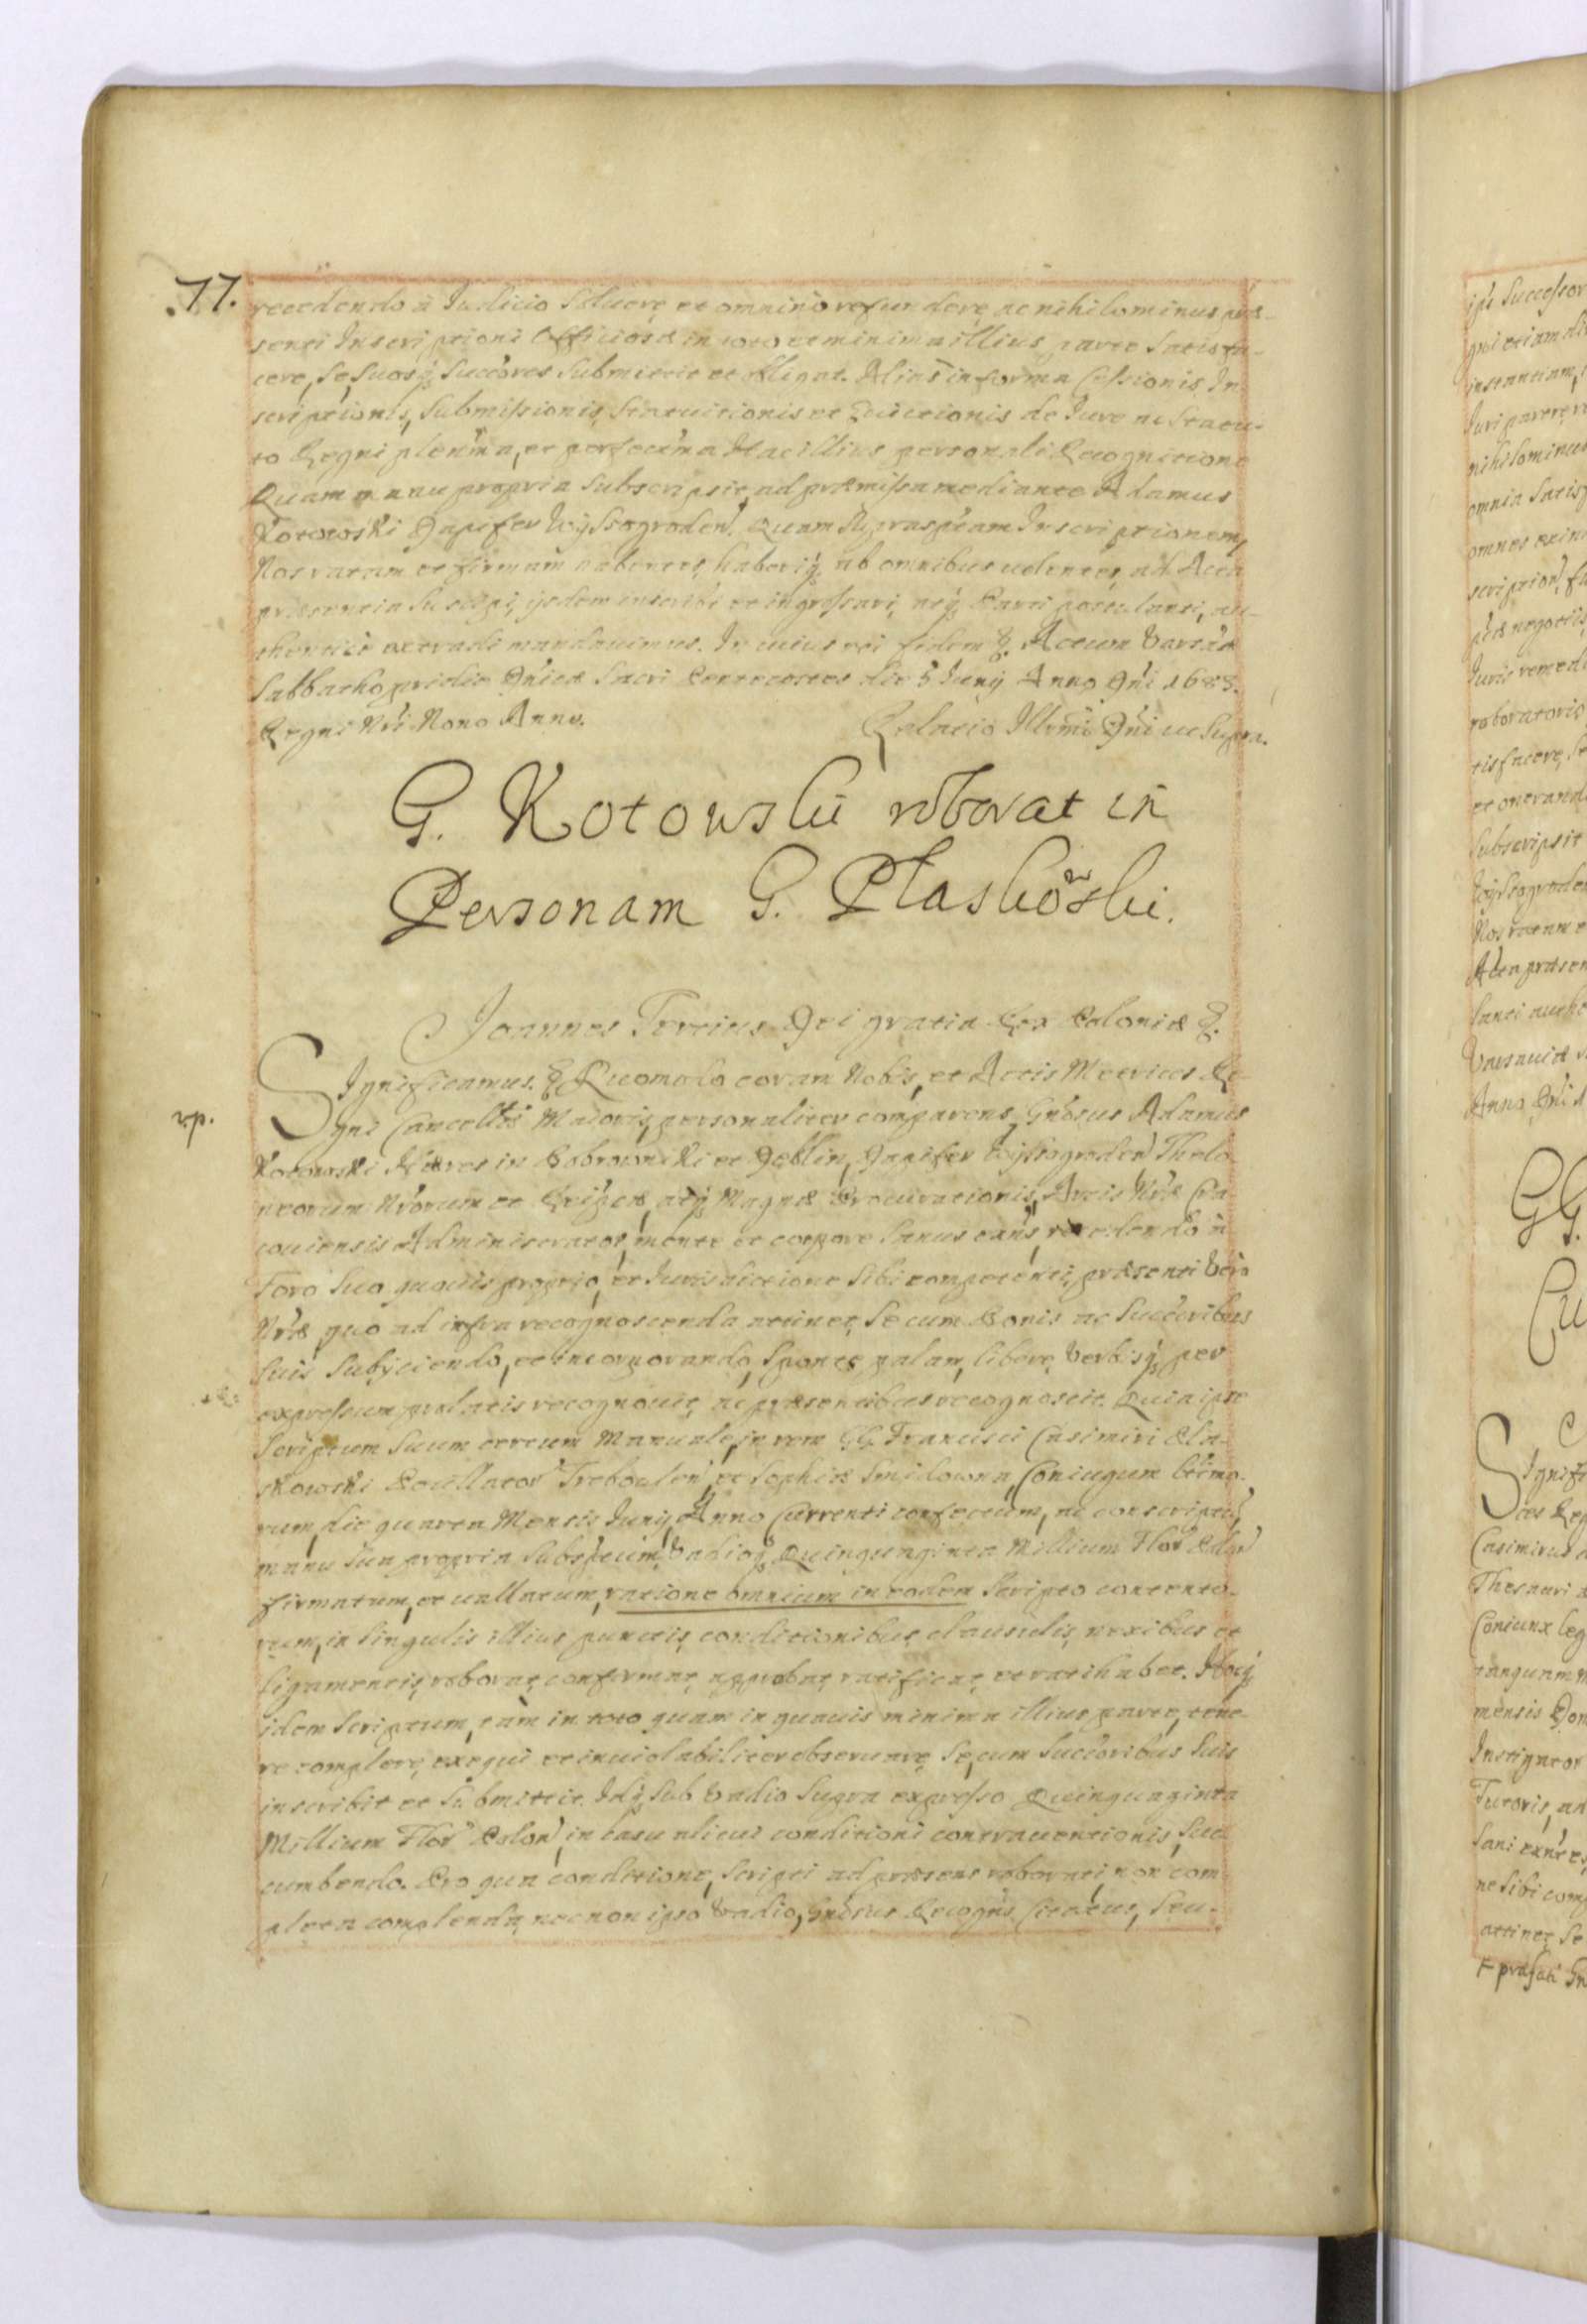 77.
recedendo à Judicio Soluere et omninò refundere ac nihilominus præ-
senti Inscriptioni Officiosæ in toto et minima illius parte Satisfa-
cere, Se Suosq́ Succ̃ores Submittit et obligat. Alias in forma Cessionis In-
scriptionis, Submissionis, Statuitionis et Euictionis de Jure ac Statu-
to Regni plenim̃a, et perfectim̃a Hac illius personali Recognitione
Quam manu propria Subscripsit, ad præmissa mediante Adamus
Kotowski Dapifer Wyssogroden̄. Quam Suprasc̃ptam Inscriptionem,
Nos ratam et firmam habentes, haberiq́ ab omnibus uolentes, ad Acta
præsentia Suscipi, ijsdem inscribi et ingrossari, atq́ Parti postulanti, au-
thenticè extradi mandauimus. In cuius rei fidem &. Actum Varsauiæ
Sabbatho pridie Dn̄icæ Sacri Pentecostes die 5 Junij Anno Dn̄i 1683.
Regni Nr̃i Nono Anno. Relatio Illr̃mi Dn̄i ut Supra.
G. Kotowski roborat in
Personam G. Płaskowski.
Joannes Tertius Dei gratia Rex Poloniæ &.
Significamus. & Quomodo coram Nobis, et Actis Metrices Re-
rp.
gni Cancellr̃æ Maioris, personaliter comparens, Gn̄rosus Adamus
Kotowski Hæres in Bobrowniki et Deblin, Dapifer Wyssogroden̄ Thelo-
neorum Nr̃orum et Reip̃cæ, atq́ Magnæ Procurationis, Arcis Nr̃æ Cra-
couiensis Administrator, mente et corpore Sanus exn̄s, recedendo à
Foro Suo quouis proprio, et Jurisdictione Sibi competenti, præsenti Verò
Nr̃æ quo ad infra recognoscenda attinet, Se cum Bonis ac Succ̃oribus
Suis Subijciendo, et incorporando, Sponte, palam, libere, Verbisq́ per
expressum prolatis recognouit, ac præsentibus recognoscit. Quia ipse
Scriptum Suum certum Manuale, in rem GG. Francisci Casimiri Pła-
skowski Pocillator Trebowlen̄, et Sophiæ Smidowna, Coniugum l̃timo-
rum, die quarta Mensis Junij, Anno Currenti confectum, ac conscriptũ,
manu Sua propria Subsc̃ptum, Vadioq́ Quinquaginta Millium Flor̃ Polon̄
firmatum, et uallatum, ratione omnium in eodem Scripto contento-
rum, in Singulis illius punctis, conditionibus, clausulis, nexibus et
ligamentis, roborat, confirmat, approbat, ratificat, et ratihabet. Hocq́
idem Scriptum, tàm in toto quam in quauis minima illius parte, tene-
re complere, exequi et inuiolabiliter obseruare, Se, cum Succ̃oribus Suis
inscribit et Submittit. Idq́ Sub Vadio Supra expresso Quinquaginta
Millium Flor̃ Polon̄, in casu alicui conditioni contrauentionis, Suc-
cumbendo. Pro qua conditione, Scripti ad præsens roborati, non com-
pleta complenda, nec non ipso Vadio, Gn̄rosus Recogn̄s Citatus, Seu-